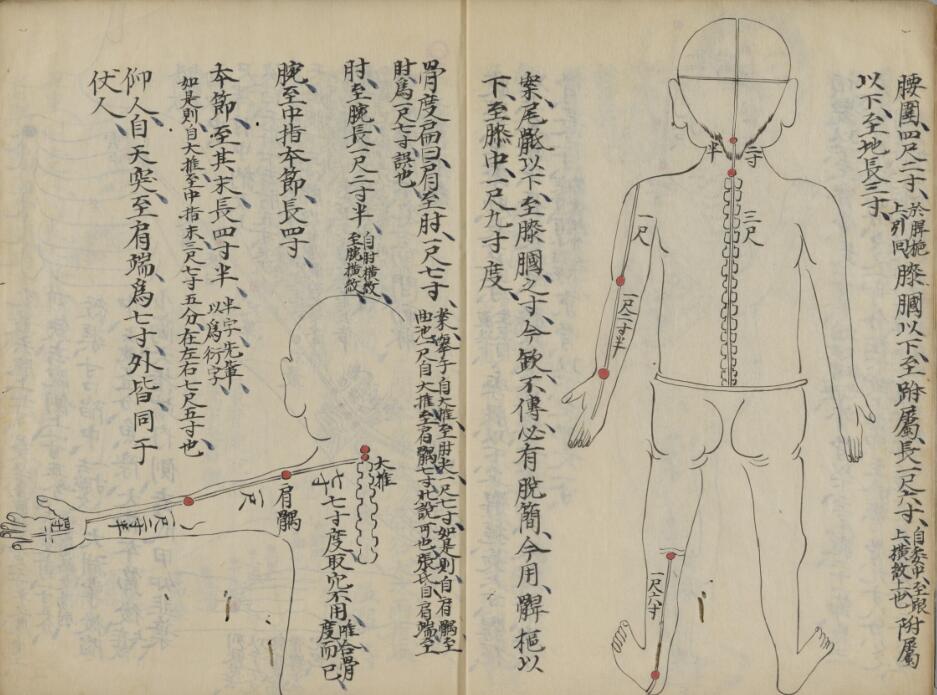 腰圍四尺二寸、於髀樞上引囘膝膕以下至跗屬、長一尺六寸、自委中至跟上横紋上也跗屬
以下至地長三寸、
案尾骶以下至膝膕之寸、今欽不傳必有脱簡今用髀樞以
下至膝中、一尺九寸度、
半寸
三尺
一尺
一尺二寸半
一尺六寸
骨度扁曰肩至肘一尺七寸、
曲池一尺自大推至肩髃七寸此説可也張氏自肩端至
肘為一尺七寸誤也、
肘至腕長一尺二寸半、自肘横紋至腕横紋
腕至中指本節長四寸
本節至其末長四寸半、半字先輩以為衍字
如是則自大推至中指末三尺七寸五分在左右七尺五寸也
仰人自天突至肩端為七寸外皆同于
伏人、
大推
肩髃
七寸
七寸度取穴不用唯合骨度而已
一尺
一尺二寸半